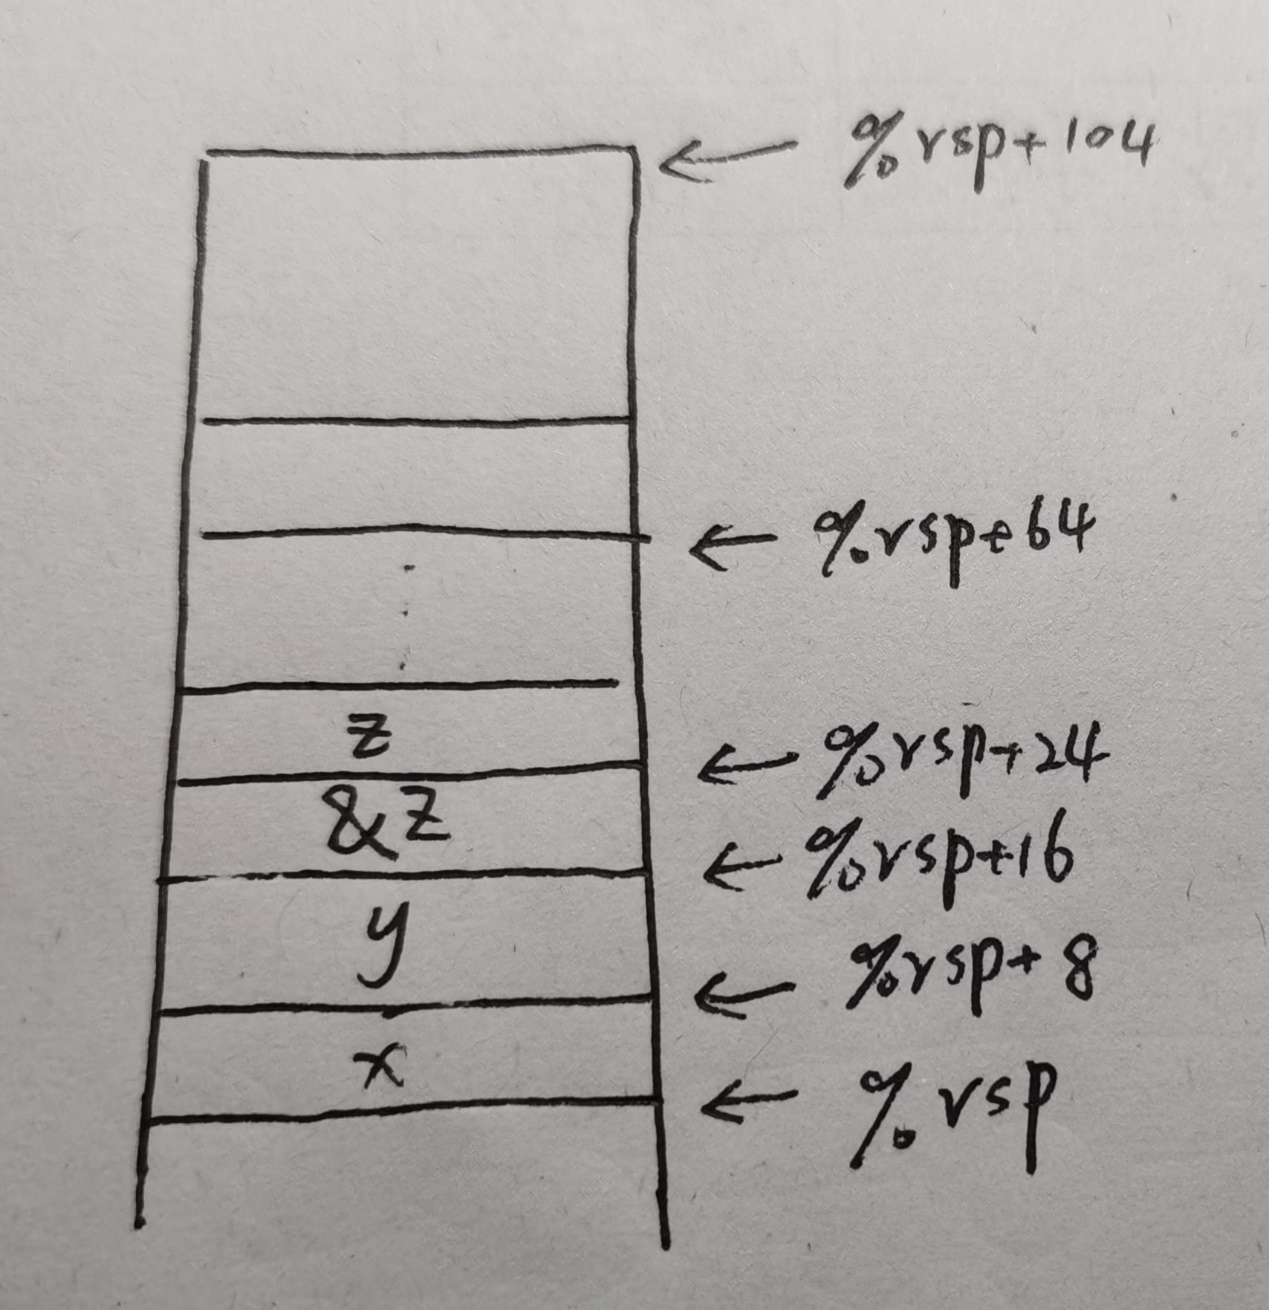 %rsp+104
%rsp+64
z
%rsp+24
&z
%rsp+16
y
%rsp+8
x
%rsp